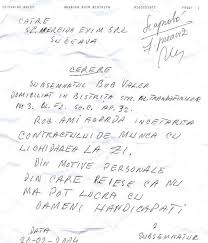 CATRE
SC MERCION EXIM SRL
SUCEAVA
CERERE
SUBSEMNATUL BOB VALER
DOMICILIAT IN BISTRITA STR. AL.TRANDAFIRILOR
SC.C AP.32.
ROB AMI ACORDA INCETAREA
CONTRACTULUI DE MUNCA CU
LICHIDAREA LA ZI.
DIN MOTIVE PERSONALE
DIN CARE REIESE CA NU
MA POT LUCRA CU
OAMENI HANDICAPATI
DATA
SUBSEMNATUR